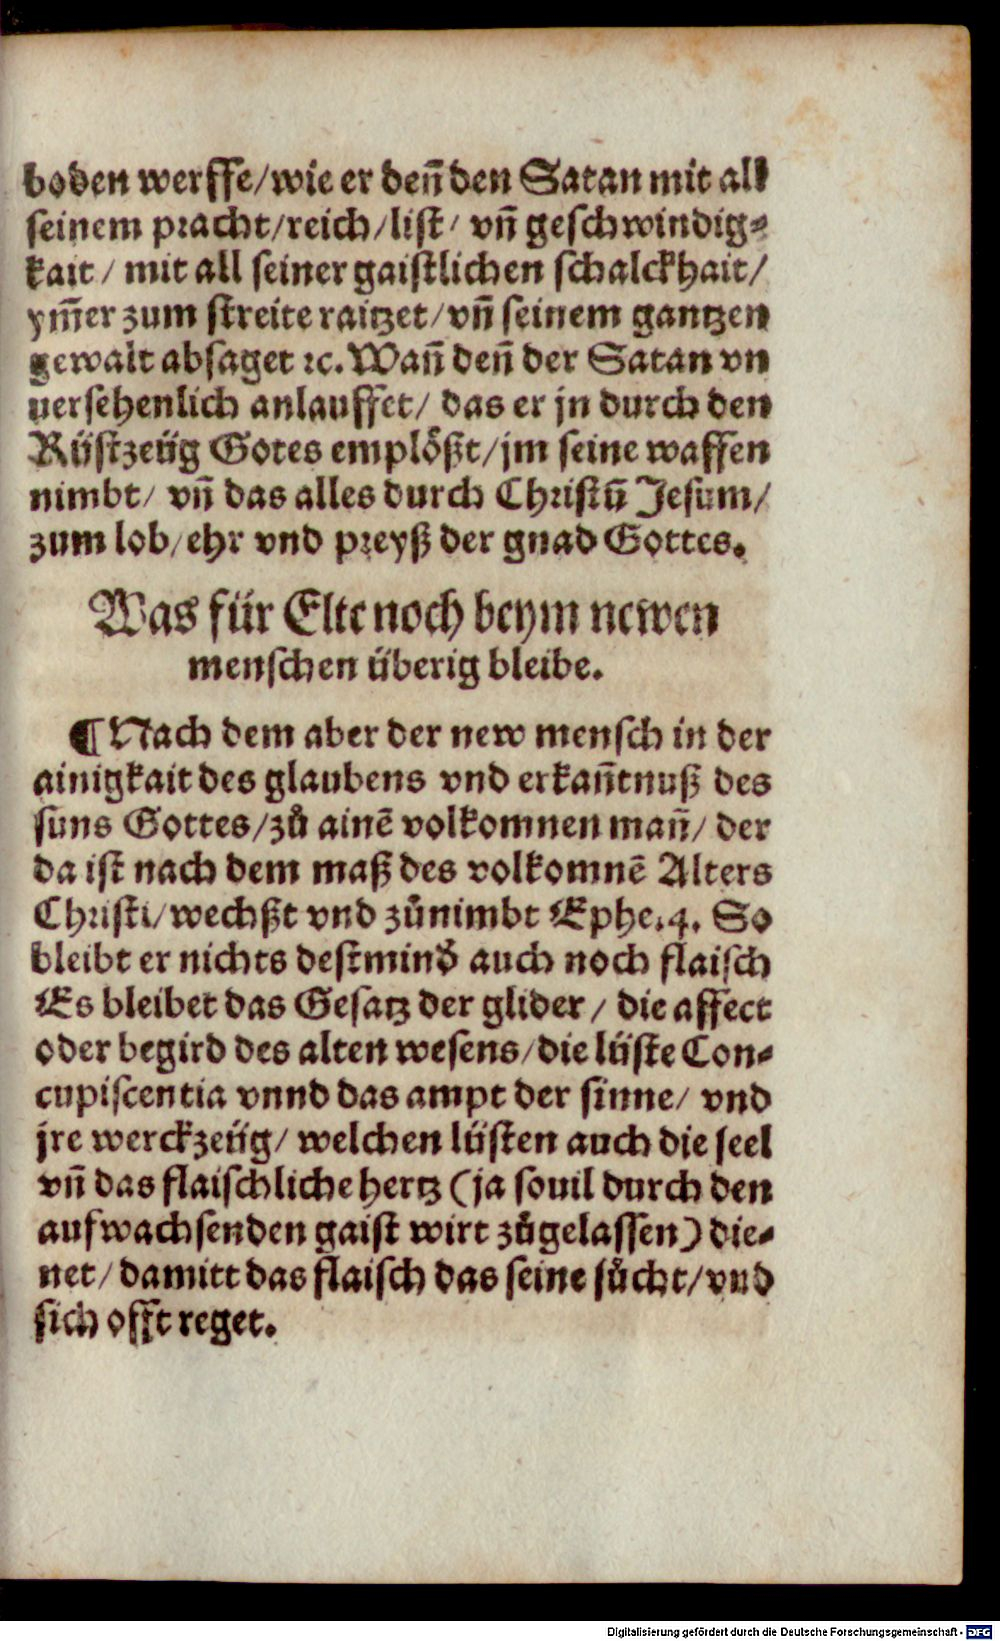 boden werffe/wie er deñ den Satan mit all
seinem pracht/reich/list/ vñ geschwindig⸗
kait/ mit all seiner gaistlichen schalckhait/
ym̃er zum streite raitzet/vñ seinem gantzen
gewalt absaget ꝛc. Wañ deñ der Satan vn
uersehenlich anlauffet/ das er jn durch den
Rüstzeüg Gotes emplößt/jm seine waffen
nimbt/ vñ das alles durch Christũ Jesum/
zum lob/ehr vnd preyß der gnad Gottes.
Was für Elte noch beym newen
menschen überig bleibe.
¶ Nach dem aber der new mensch in der
ainigkait des glaubens vnd erkañtnuß des
suns Gottes/zů ainẽ volkomnen mañ/ der
da ist nach dem maß des volkomnẽ Alters
Christi/wechßt vnd zůnimbt Ephe.4. So
bleibt er nichts destmind̕ auch noch flaisch
Es bleibet das Gesatz der glider/ die affect
oder begird des alten wesens/die lüste Con⸗
cupiscentia vnnd das ampt der sinne/ vnd
jre werckzeüg/ welchen lüsten auch die seel
vñ das flaischliche hertz (ja souil durch den
aufwachsenden gaist wirt zůgelassen) die⸗
net/damitt das flaisch das seine sůcht/vnd
sich offt reget.
Digitalisierung gefördert durch die Deutsche Forschungsgemeinschaft - DFG